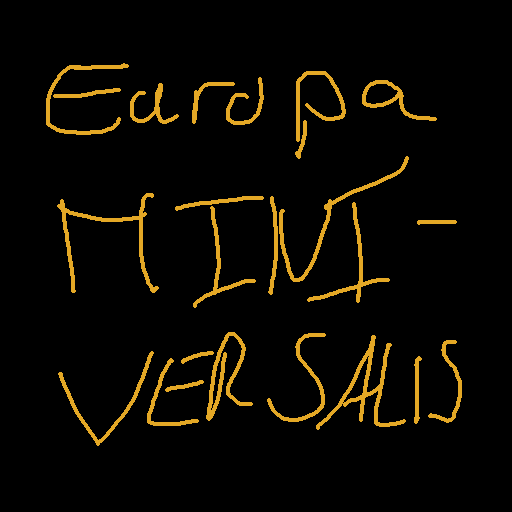 Europa
MINI-
VERSALIS